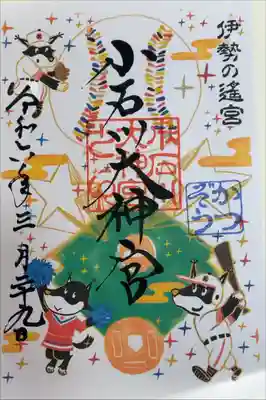 伊勢の遙宮
小石川大神宮
令和六年三月二十九日